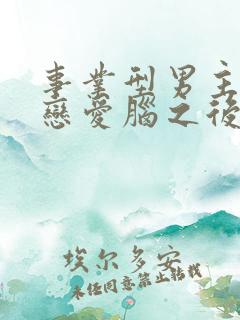 事業型男主
戀愛腦之後
埃尔多安
未经同意禁止转载